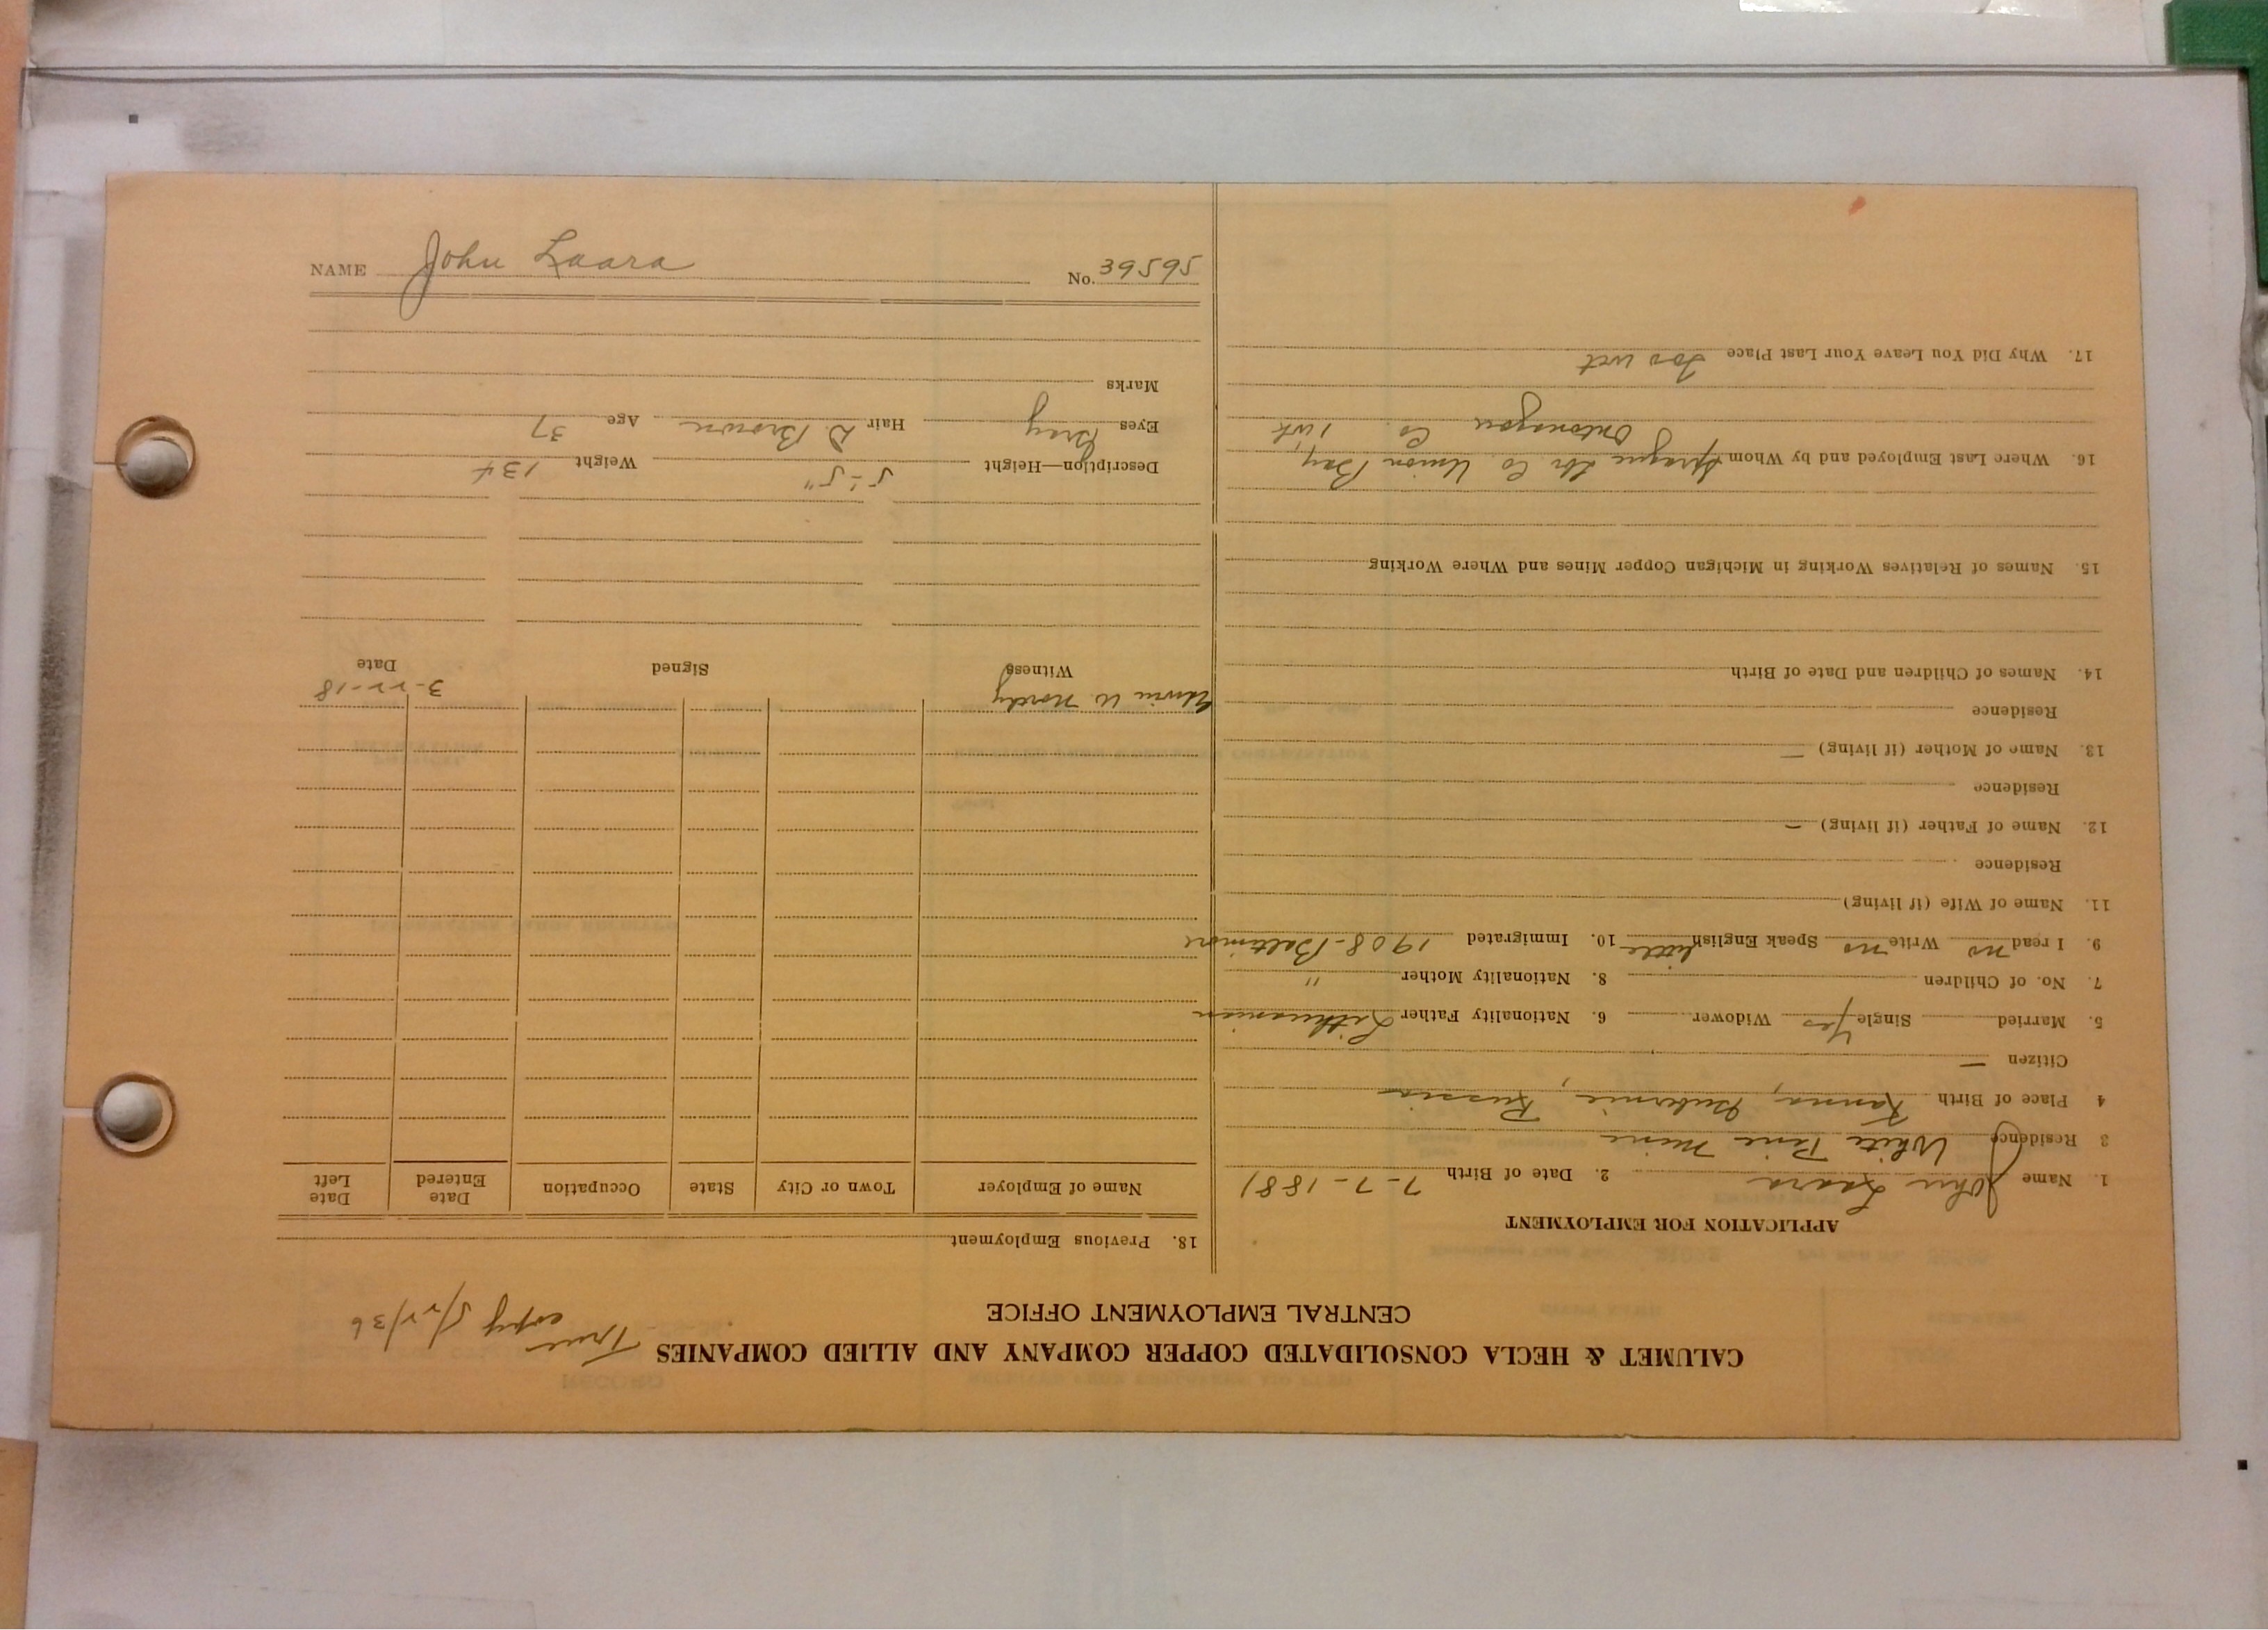 CALUMET & HECLA CONSOLIDATED COPPER COMPANY AND ALLIED COMPANIES
CENTRAL EMPLOYMENT OFFICE
True copy 5/22/36
APPLICATION FOR EMPLOYMENT
1. Name John Laara 2. Date of Birth 7-7-1881
3 Residence White Pine Mine
4 Place of Birth Kanna, Gubernie, Russia
Citizen —
5. Married Single Yes Widower 6. Nationality Father Lithuanian
7. No. of Children 8. Nationality Mother "
9. I read no Write no Speak English little 10. Immigrated 1908-Baltimore
11. Name of Wife (if living)
Residence
12. Name of Father (if living) —
Residence
13. Name of Mother (if living) —
Residence
14. Names of Children and Date of Birth
15. Names of Relatives Working in Michigan Copper Mines and Where Working
16. Where Last Employed and by Whom Sprague Lbr Co. Union Bay,
Ontonagon Co. 1 wk
17. Why Did You Leave Your Last Place Too wet
18. Previous Employment
Name of Employer Town or City State Occupation Date Entered Date Left
Edwin W. 3-22-18
Witness Signed Date
Description—Height 5'-5" Weight 134
Eyes Gray Hair D. Brown Age 37
Marks
NAME John Laara No. 39595